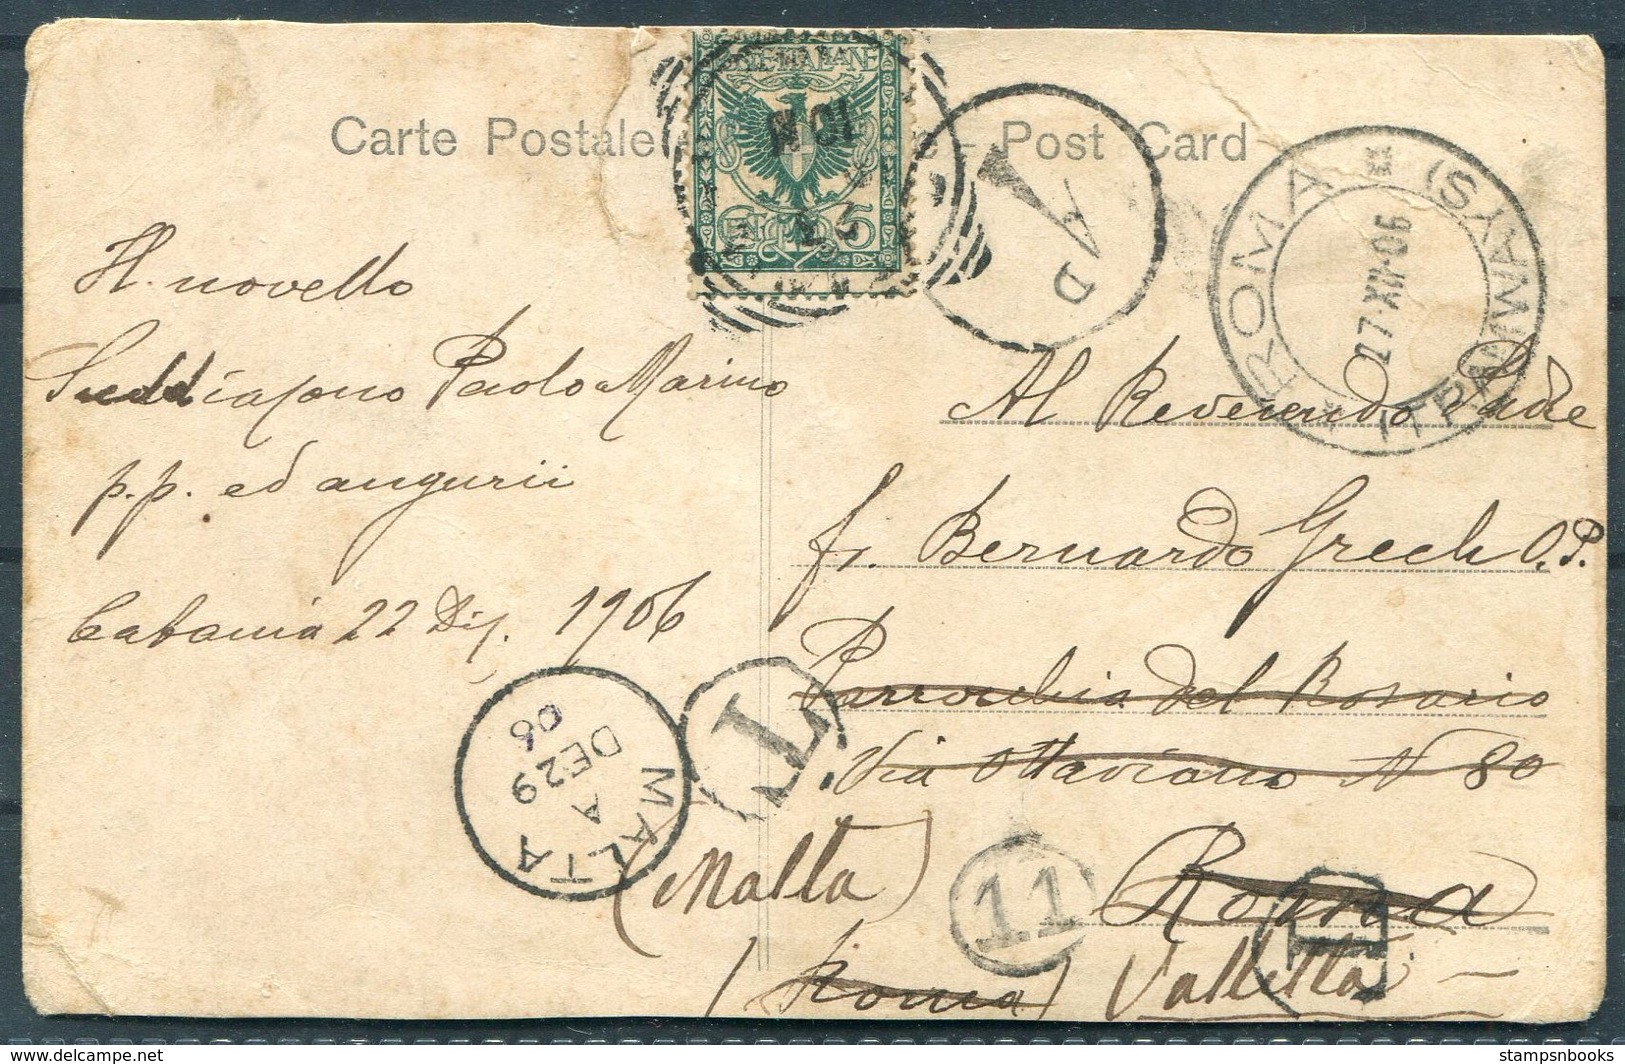 Carte Postale – Post Card
POSTE ITALIANE
CENT 5
AD
ROMA
(TRAMWAYS)
27·XII·06
Il novello
Suddiacono Paolo Marino
p.p. ed augurii
Catania 22 Dic. 1906
Al Reverendo Padre
fr. Bernardo Grech O.P.
Parrochia del Rosario
Via Ottaviano N 80
Roma
(Malta)
(Roma) Valletta
MALTA
A
DE29
06
T
11
T
stampsnbooks